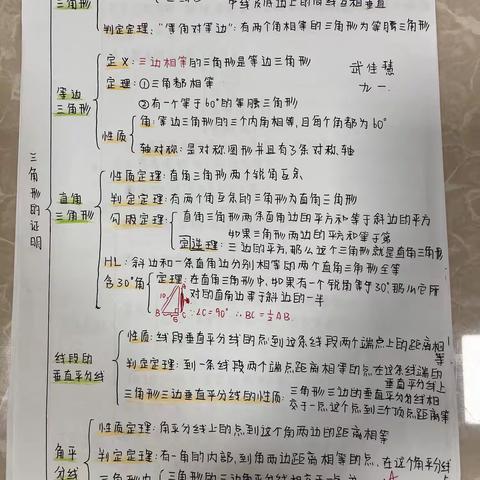 三角形
中线及底边上的高线互相垂直
判定定理:“等角对等边”:有两个角相等的三角形为等腰三角形
三角形的证明
等边三角形
定义:三边相等的三角形是等边三角形
武佳慧
九一.
定理:①三角都相等
②有一个等于60°的等腰三角形
性质
角:等边三角形的三个内角相等,且每个角都为60°
轴对称:是对称图形并且有3条对称轴
直角三角形
性质定理:直角三角形两个锐角互余
判定定理:有两个角互余的三角形为直角三角形
勾股定理
直角三角形两条直角边的平方和等于斜边的平方
如果三角形两边的平方和等于第
三边的平方,那么这个三角形就是直角三角形
HL:斜边和一条直角边分别相等的两个直角三角形全等
含30°角
定理:在直角三角形中,如果有一个锐角等于30°,那么它所
对的直角边等于斜边的一半
A
10
B 5 C
∵∠C=90° ∴BC=½AB.
线段的垂直平分线
性质:线段垂直平分线的点到这条线段两个端点上的距离相等
判定定理:到一条线段两个端点距离相等的点,在这条线段的
垂直平分线上
三角形三边垂直平分线的性质:
三角形三边的垂直平分线相
交于一点,这个点到三个顶点距离等
角平分线
性质定理:角平分线上的点到这个角两边的距离相等
判定定理:有一角的内部,到角两边距离相等的点,在这个角平分线
三角形内
三角形的三边角平分线相交于一点,并
A